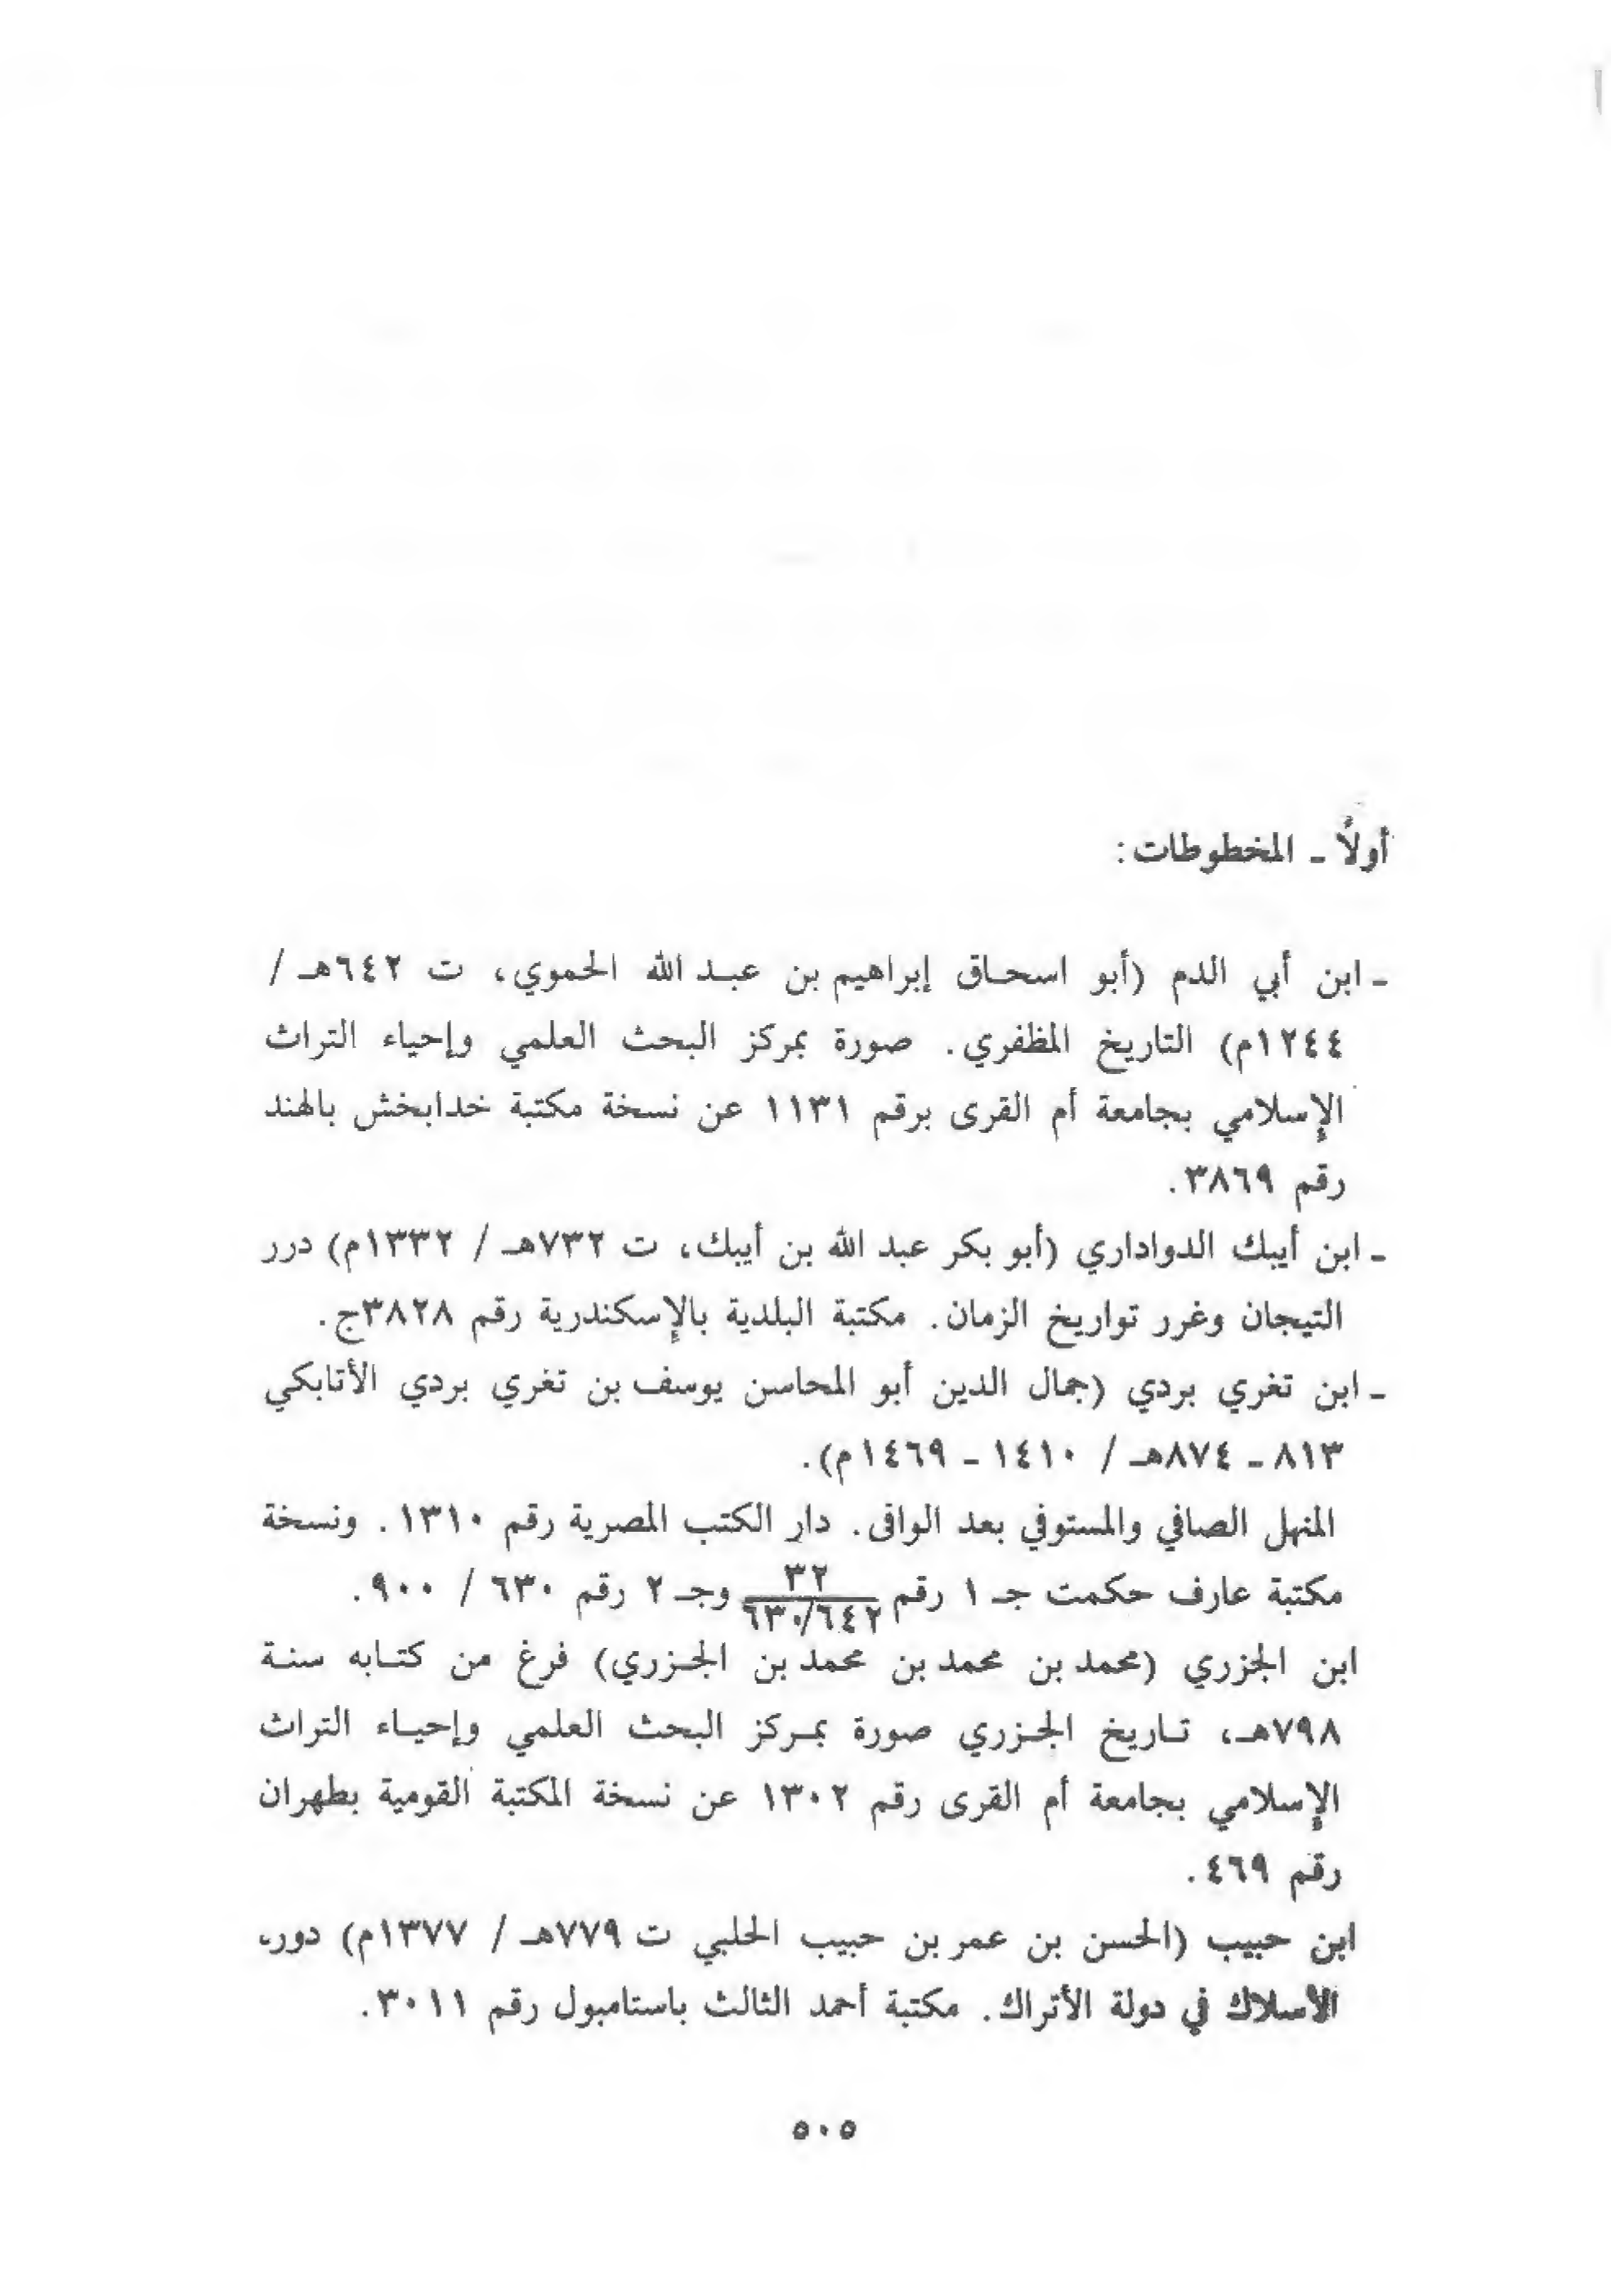 أولاً ـ المخطوطات:
ـ ابن أبي الدم (أبو اسحـاق إبراهيم بن عبـد الله الحموي، ت ٦٤٢هـ /
١٢٤٤م) التاريخ المظفري. صورة بمركز البحث العلمي وإحياء التراث
الإسلامي بجامعة أم القرى برقم ١١٣١ عن نسخة مكتبة خدابخش بالهند
رقم ٣٨٦٩.
ـ ابن أيبك الدواداري (أبو بكر عبد الله بن أيبك، ت ٧٣٢هـ / ١٣٣٢م) درر
التيجان وغرر تواريخ الزمان. مكتبة البلدية بالإسكندرية رقم ٣٨٢٨ج.
ـ ابن تغري بردي (جمال الدين أبو المحاسن يوسف بن تغري بردي الأتابكي
٨١٣ ـ ٨٧٤هـ / ١٤١٠ ـ ١٤٦٩م).
المنهل الصافي والمستوفي بعد الوافى. دار الكتب المصرية رقم ١٣١٠. ونسخة
مكتبة عارف حكمت جـ ١ رقم ٣٢ / ٦٣٠/٦٤٢ وجـ ٢ رقم ٦٣٠ / ٩٠٠.
ابن الجزري (محمد بن محمد بن محمد بن الجـزري) فرغ من كتـابه سنـة
٧٩٨هـ، تـاريخ الجـزري صورة بمـركز البحث العلمي وإحيـاء التراث
الإسلامي بجامعة أم القرى رقم ١٣٠٢ عن نسخة المكتبة القومية بطهران
رقم ٤٦٩.
ابن حبيب (الحسن بن عمر بن حبيب الحلبي ت ٧٧٩هـ / ١٣٧٧م) دور،
الأسلاك في دولة الأتراك. مكتبة أحمد الثالث باستامبول رقم ٣٠١١.
٥٠٥